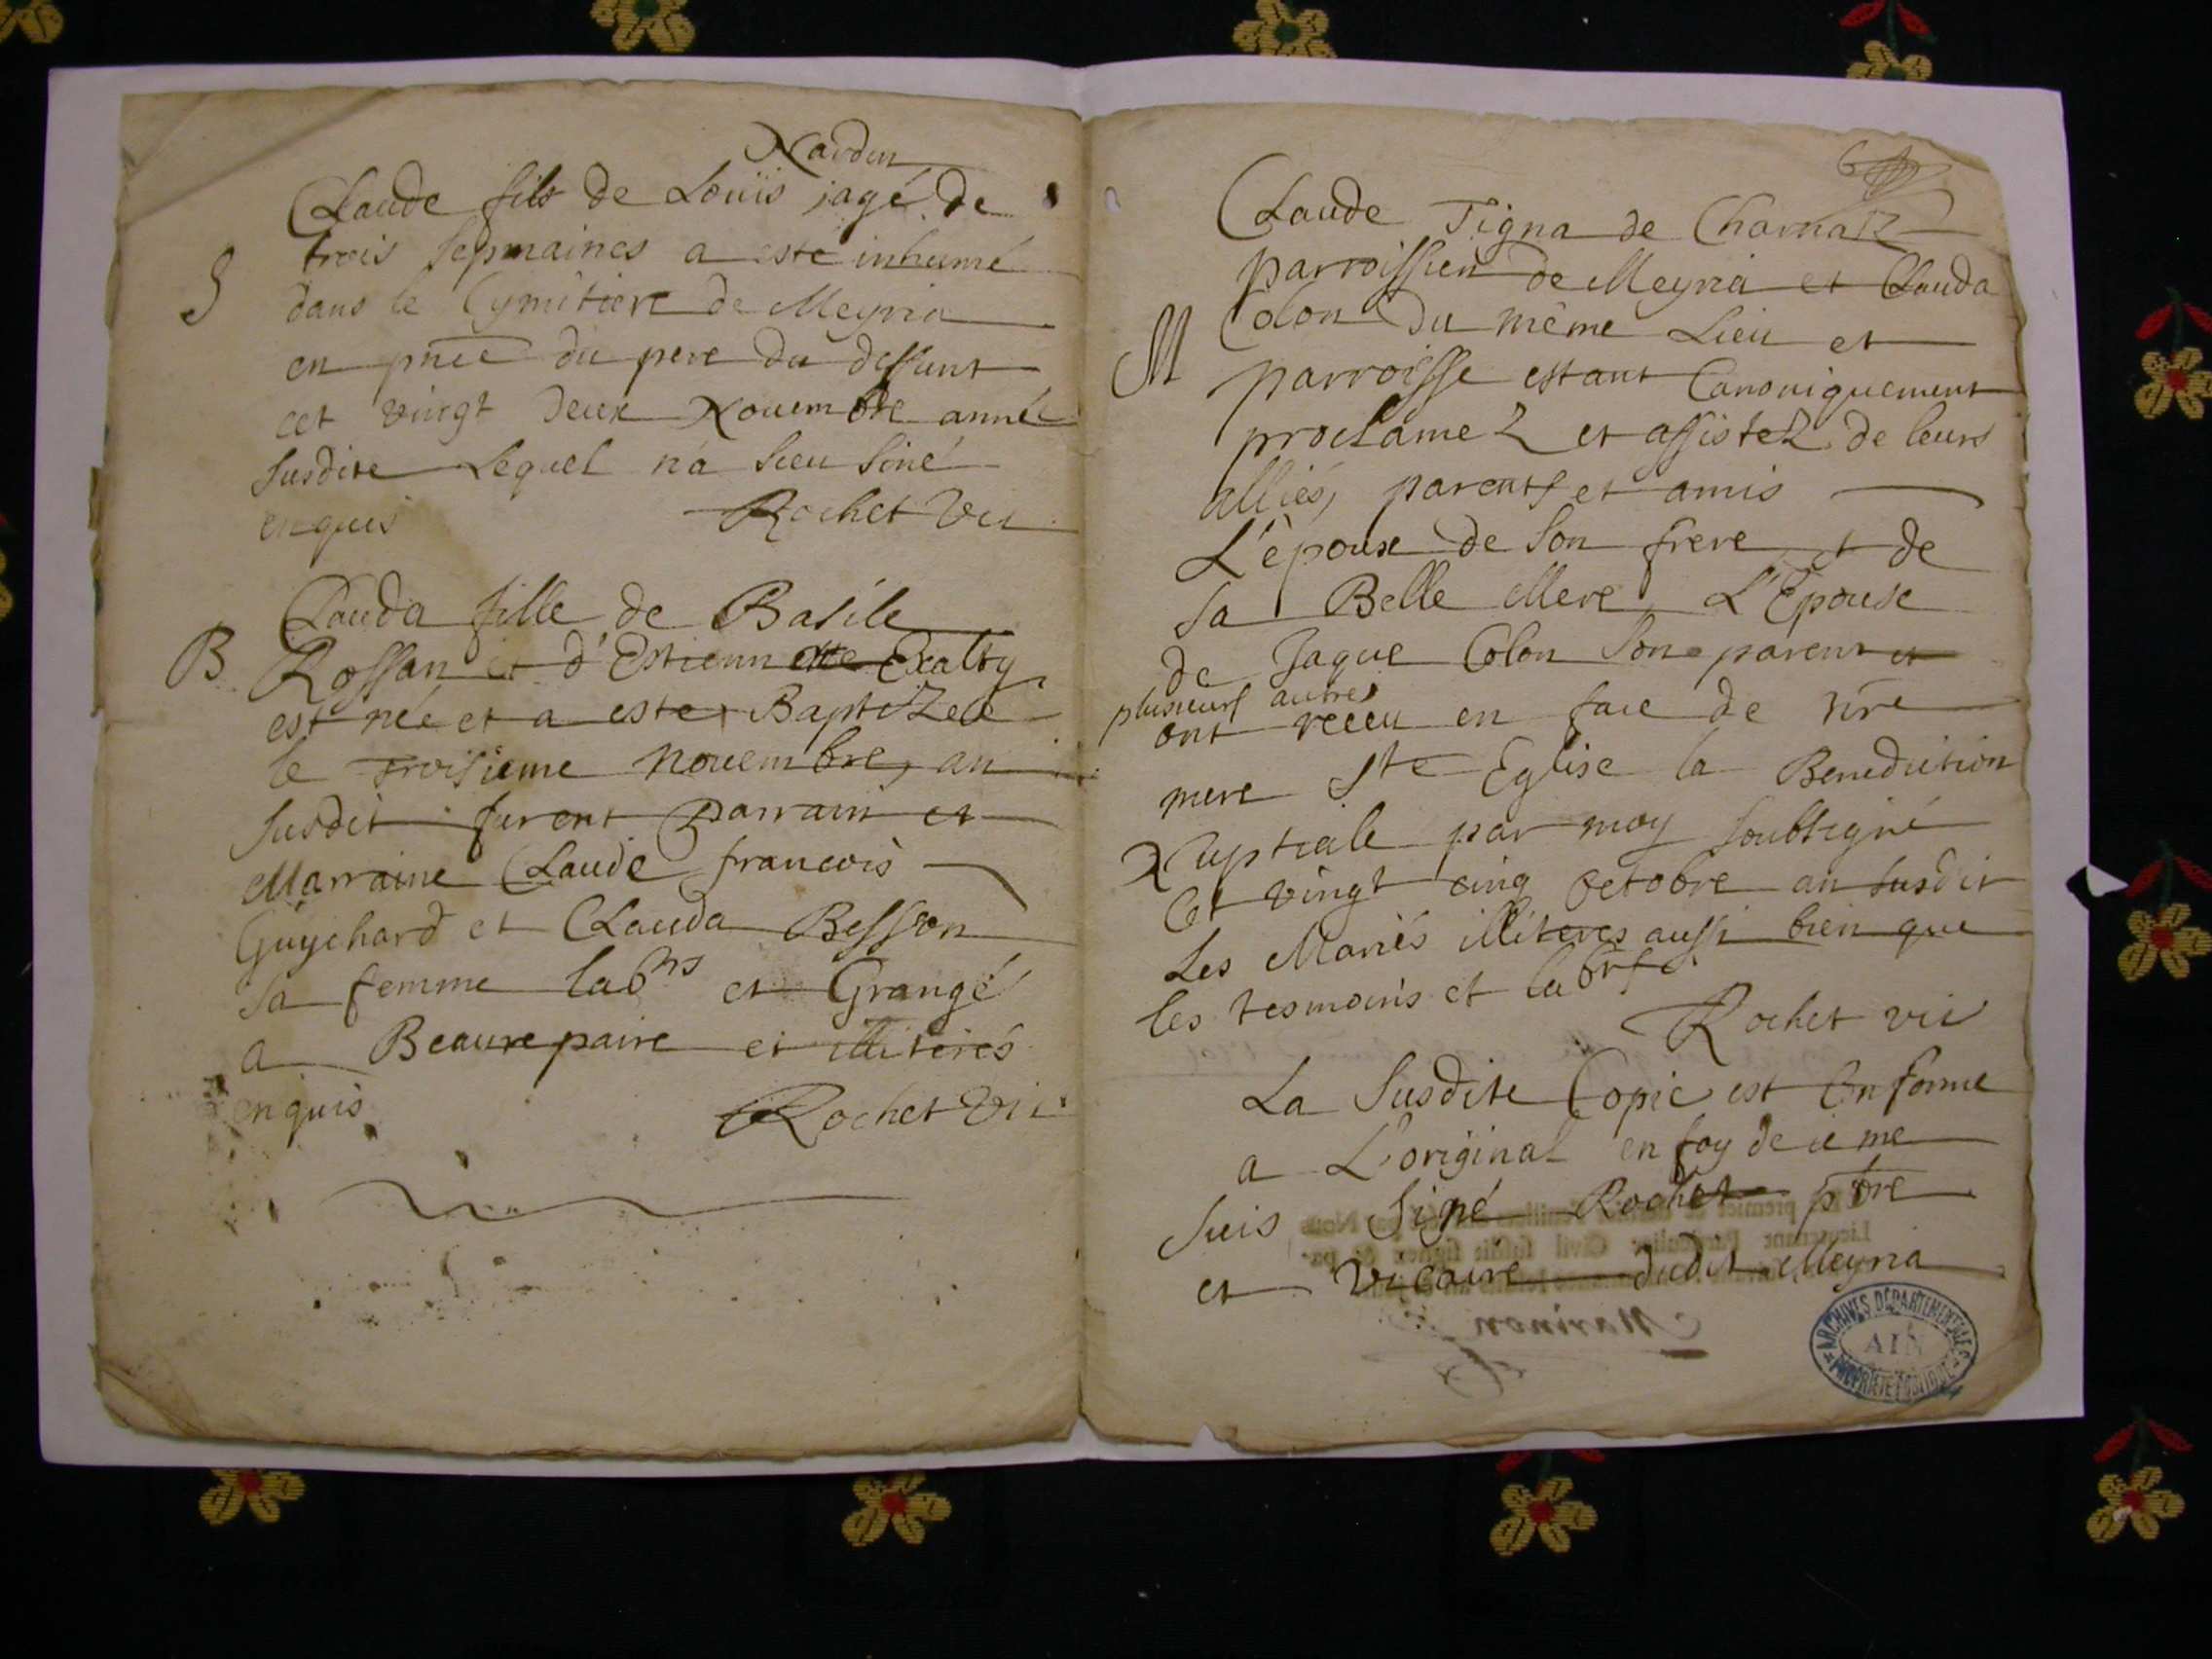 Nardin
Claude fils de Louïs agé de
S
trois sepmaines a esté inhumé
dans le Cymitiere de Meyria
en pnce du pere du deffunt
cet vingt deux Nouembre année
susdite Lequel n'a sceu siné
enquis Rochet vic
Clauda fille de Basile
B
Rossan et d'Estiennette
est née et a esté Baptizeé
le troisieme nouembre, an
susdit furent Parrain et
Marraine Claude francois
Guychard et Clauda Besson
sa femme labrs et Grangé
a Beaurepaire et illiterés
enquis Rochet vic
6
Claude Tigna de Charnatz
parroissien de Meyria et Clauda
M
Colon du même Lieu et
parroisse estant Canoniquement
proclamez et assistez de leurs
alliés, parents et amis
L'époux de son frere et de
sa Belle Mere, L'Epouse
de Jaque Colon son parent et
plusieurs autres
ont receu en face de nre
mere Ste Eglise la Benediction
Nuptiale par moy soubsigné
Cet vingt cinq octobre an susdit
Les Mariés illiteres aussi bien que
les tesmoins et labrs
Rochet vic
La susdite Copie est Conforme
a L'original en foy de ce me
suis signé Rochet pbre
et vicaire dudit Meyria
Marinon
ARCHIVES DÉPARTEMENTALES
AIN
PROPRIÉTÉ PUBLIQUE